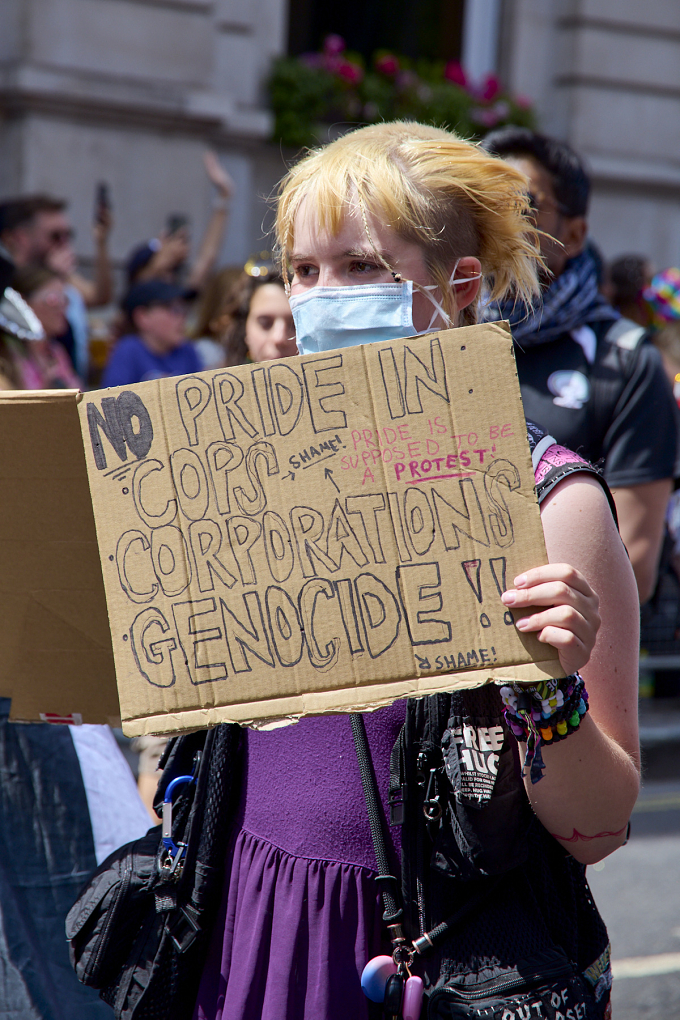 NO PRIDE IN
COPS
SHAME!
PRIDE IS
SUPPOSED TO BE
A PROTEST!
CORPORATIONS
GENOCIDE!!
SHAME!
FREE
HUG
OUT OF